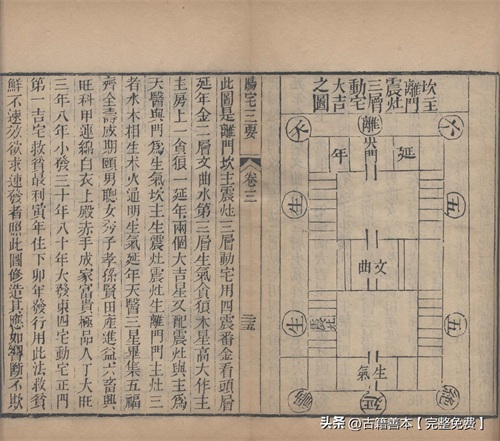 坎主
離門
震灶
三層
動宅
大吉
之圖
六
離
六
火門
延
年
五
生
文曲
五
生
震灶
生
氣
絕
延
陽宅三要
卷三
三五
此圖是離門坎主震灶三層動宅用四震番金看頭層
延年金二層文曲水第三層生氣貪狼木星高大作主
主房上一貪狼一延年兩個大吉星又配震灶與主爲
天醫與門爲生氣坎主生震灶震灶生離門門主灶三
者水木相生木火通明生氣延年天醫三星畢集五福
齊全壽咸期頤男聰女秀子孝孫賢田產進益六畜興
旺科甲連綿白衣上殿赤手成家富貴極品人丁大旺
三年八年小發三十年八十年大發東四宅動宅正門
第一吉宅救貧最利寅年住下卯年發行用此法救貧
鮮不速效欲求速發者照此圖修造其應如響斷不欺
头条 @古籍善本【完整免费】